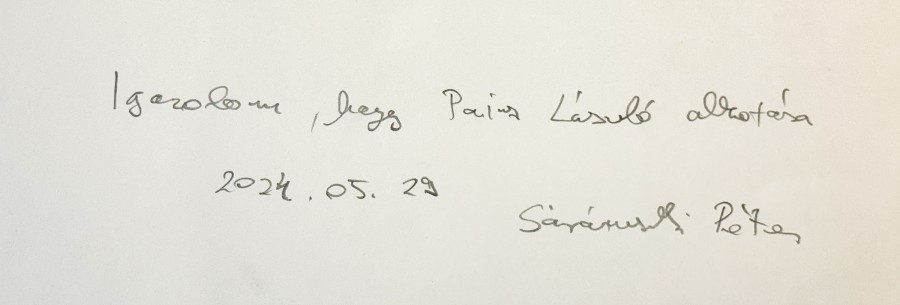 Igazolom, hogy Pains László alkotása
2024. 05. 29
Sáránszki Péter